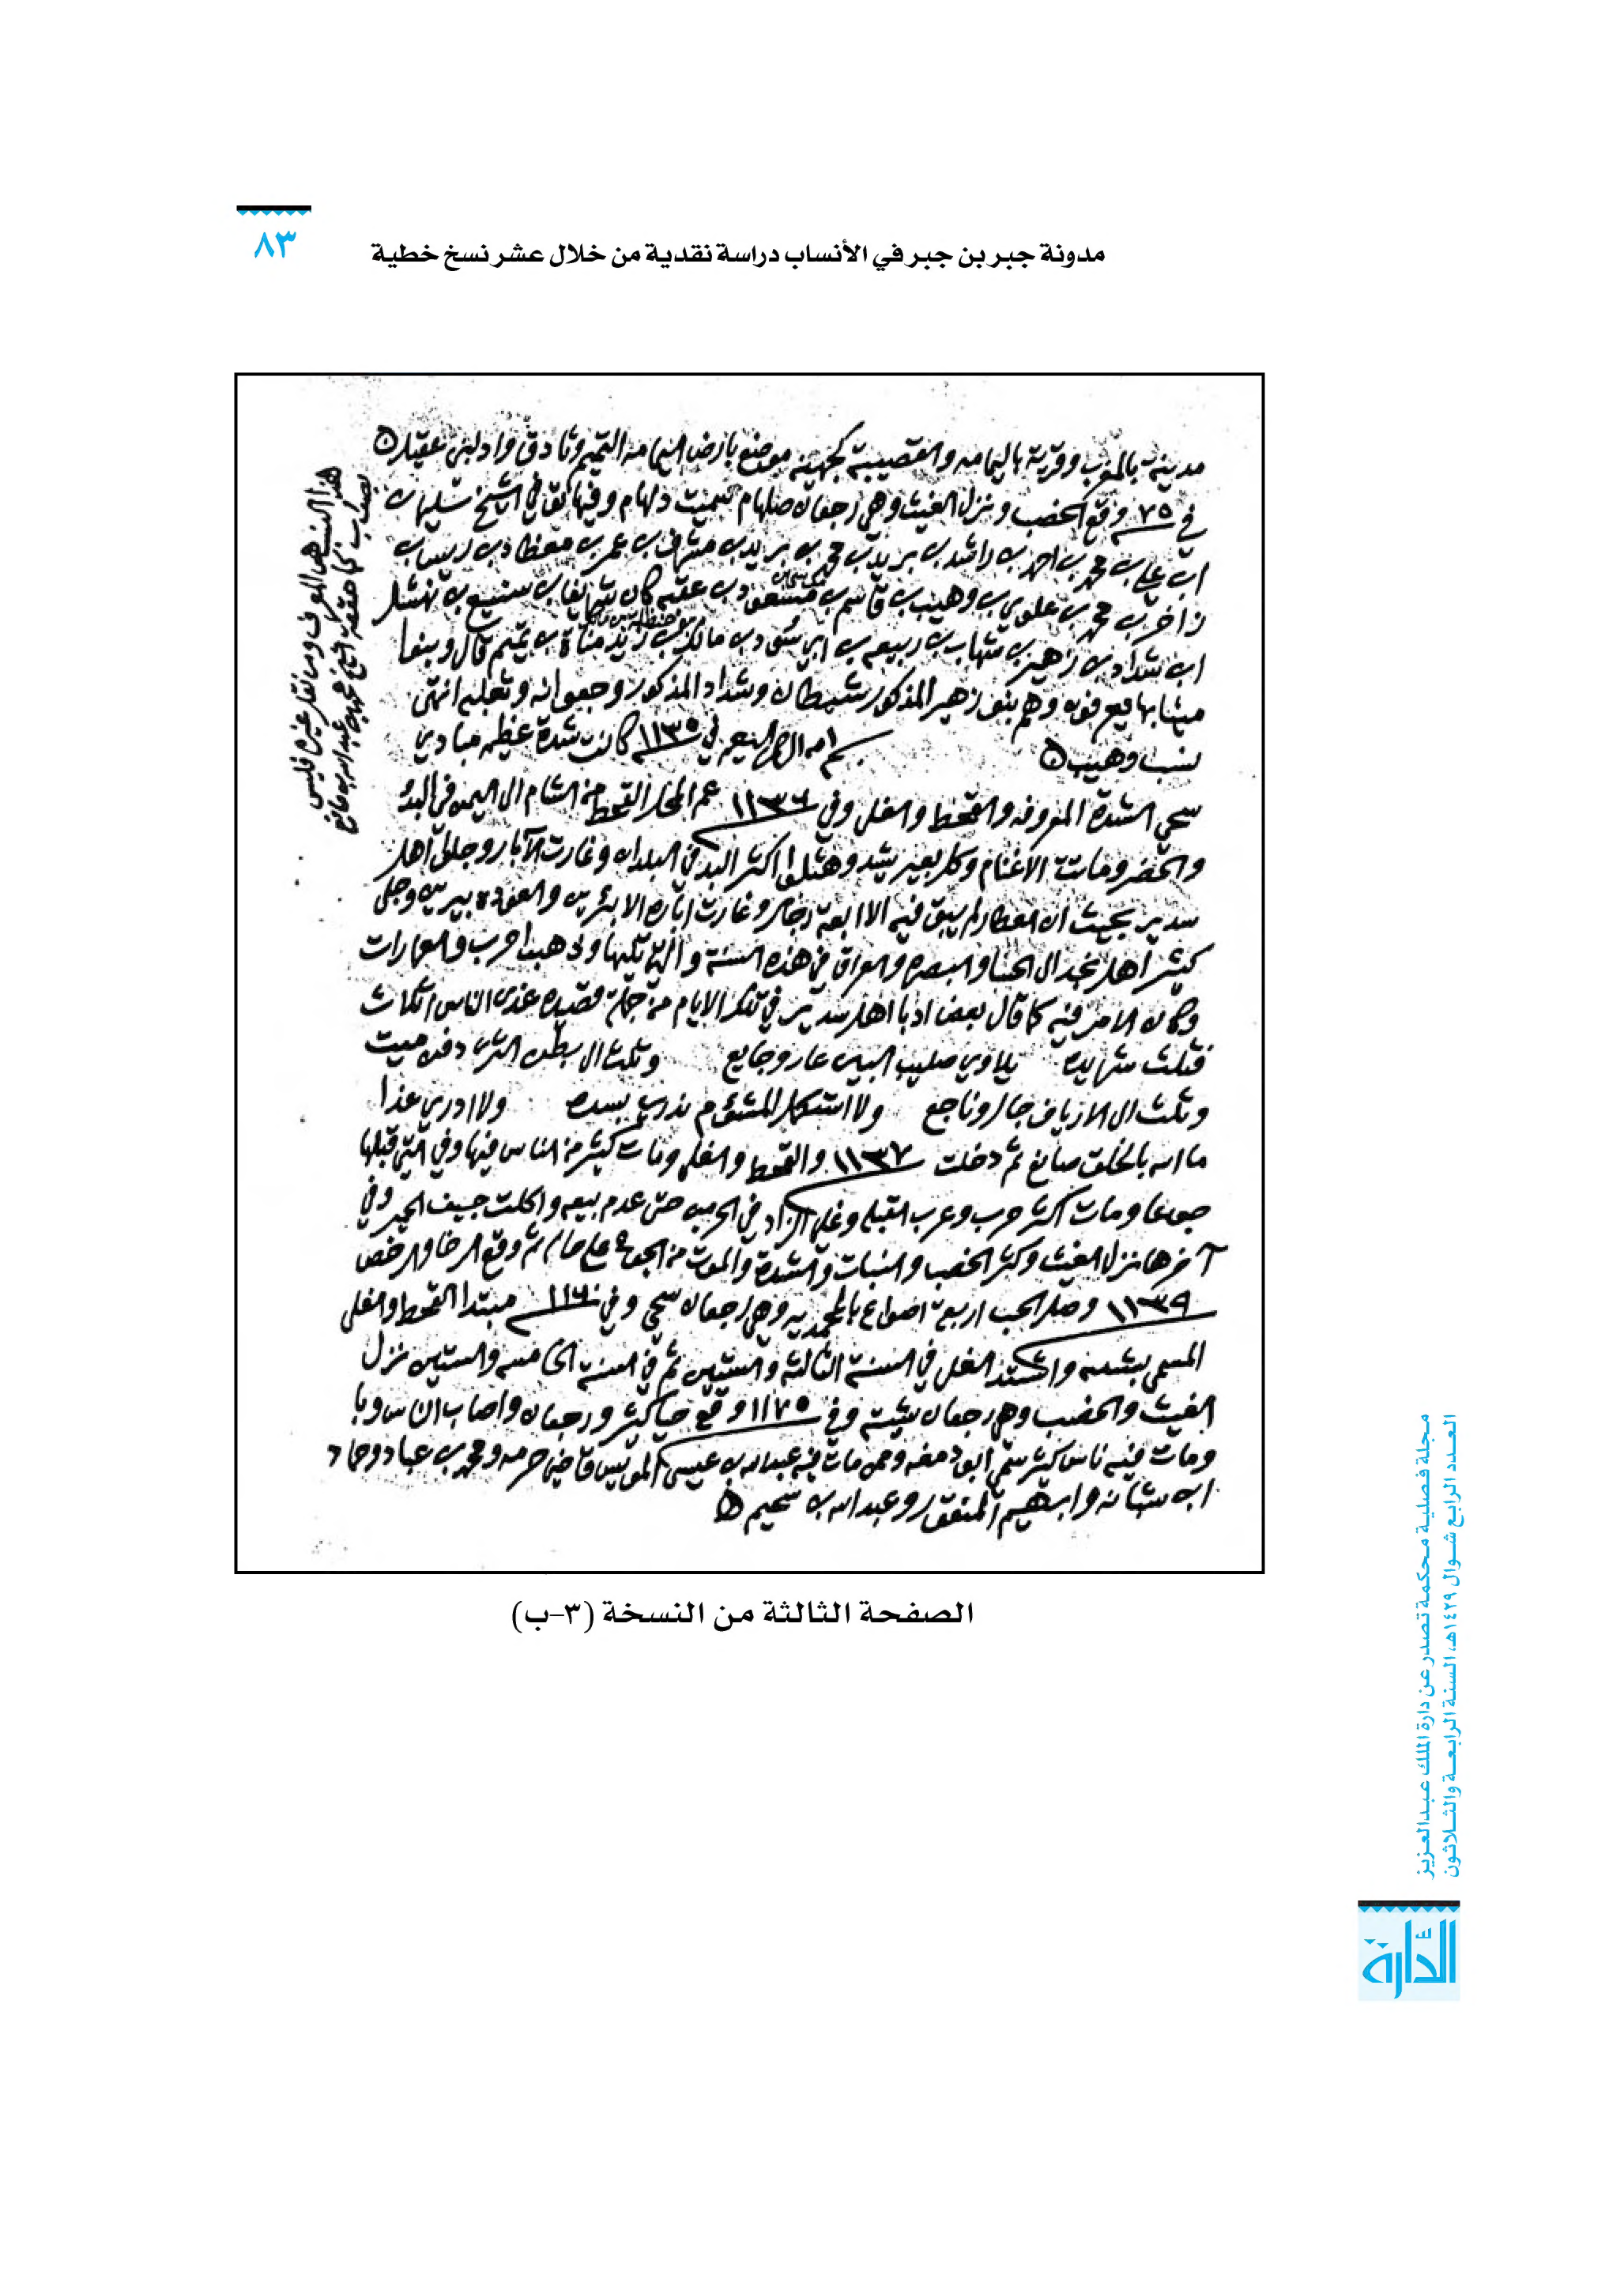 ٨٣
مدونة جبر بن جبر في الأنساب دراسة نقدية من خلال عشر نسخ خطية
مدينة بالمغرب وقرية باليمامه والقصيبة كجهينه موضع بارض اليمامه التميم وثادق واد لبني عقيل ه
في ٧٥ وقع الخصب ونزل الغيث وهي رجعان صلهام سميت دلهام وفيها الشيخ سليمان
ابن علي بن محمد بن احمد بن راشد بن بريد بن محمد بن بريد بن مشرف بن عمر بن معضاد بن ريس بن
زاخر بن محمد بن علوي بن وهيب بن قاسم بن مسعود بن عقبه بن سنيع بن نهشل
ابن شداد بن زهير بن شهاب بن ربيعه بن ابي سود بن مالك بن زيد مناة بن تميم قال وبنوا
زهير المذكور شيطان وشداد المذكور وجعوانه وثعلبه انتهى
نسب وهيب ه
الرحمن الرحيم في ١١٣٥ كانت شدة عظيمه مبادي
سحي الشدة المعروفه والقحط والغلى وفي ١١٣٦ عم المحل القحط من الشام الى اليمن في البدو
والحضر وماتت الاغنام وكل بعير يشد وهتلوا اكثر البدو في البلدان وغارت الآبار وجلى اهل
سدير بحيث ان العطار لم يبق فيه الا اربعة رجال وغارت اباره الا بئرين والعوده بيرين وجلى
كثير اهل نجد الى الحسا والبصره والعراق في هذه السنة والتي تليها وذهبوا حرب والعمارات
وكان الامر فيه كما قال بعض ادبا اهل سدير في تلك الايام من جملة قصيده
يلاوي صليب البين عار وجايع
وثلث الى بطن الثرى دفن ميت
وثلث الى الارياف جال وناجع
ولا ادري غذا
ما الله بالخلق صانع ثم دخلت ١١٣٧ والقحط والغلى ومات كثير من الناس فيها وفي التي قبلها
جوعا ومات اكثر حرب وعرب القبله وغلى الزاد في الحرمين حتى عدم بيعه واكلت جيف الحمير وفي
آخرها نزل الغيث وكثر الخصب والنبات والشدة والموت من الجوع على حاله ثم وقع الرخا والرخص
١١٣٩ وصل الحب اربعة اصواع بالمحمديه وهي رجعان سحي وفي ١١٦٠ مبتدا القحط والغلى
المسمى بشته واشتد الغلى في السنة الثالثة والستين ثم في السنة الخامسه والستين نزل
الغيث والخصب وهي رجعان شيته وفي ١١٧٥ وقع حيا كثير ورجعان واصاب الناس وبا
ومات فيه ناس كثير سمي ابو دمغه وممن مات فيه عبدالله بن عيسى المويس قاضي حرمه ومحمد بن عباد وحماد
ابن شبانه وابراهيم المنقور وعبدالله بن سحيم ه
الصفحة الثالثة من النسخة (٣-ب)
مجلة فصلية محكمة تصدر عن دارة الملك عبدالعزيز
العدد الرابع شوال ١٤٢٩هـ، السنة الرابعة والثلاثون
الدارة